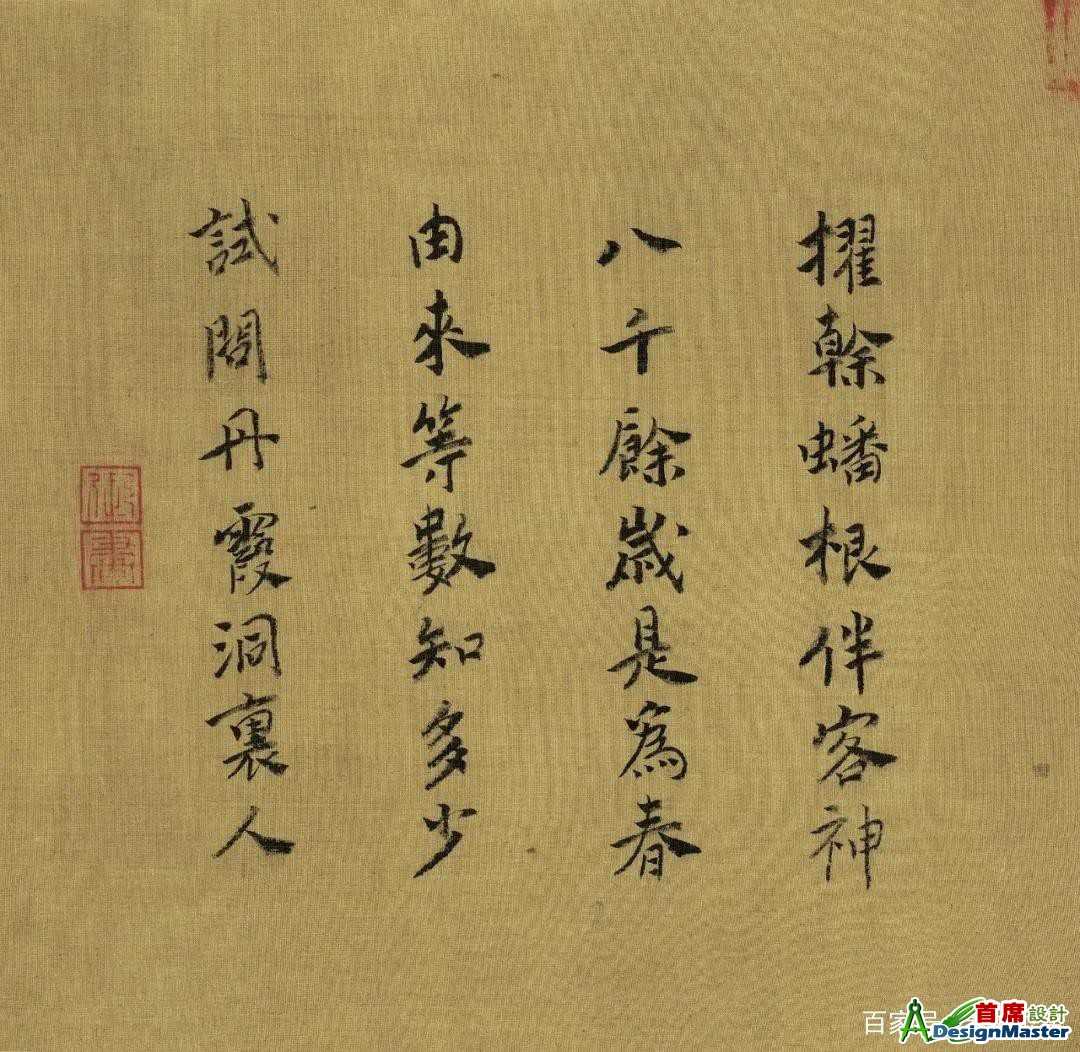 擢榦蟠根伴客神
八千餘歲是為春
由來等數知多少
試問丹霞洞裏人
御書
首席設計
DesignMaster